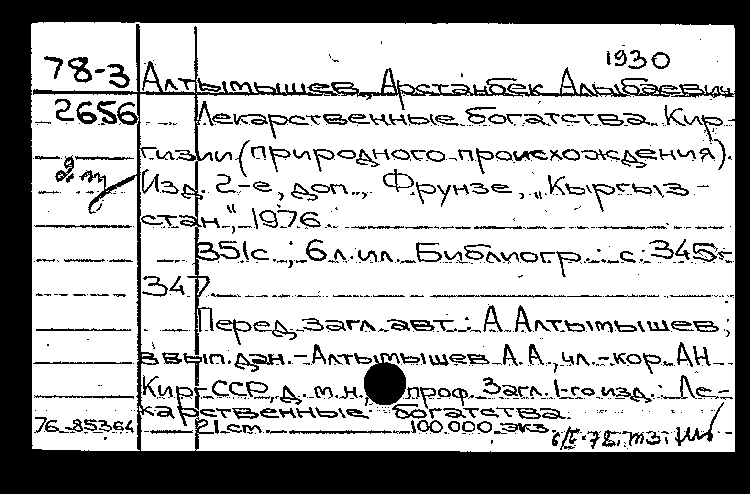 1930
78-3 Алтымышев, Арстанбек Алыбаевич
2656 Лекарственные богатства Кир-
гизии (природного происхождения).
Изд. 2-е, доп., Фрунзе, „Кыргыз-
стан", 1976.
351с.; 6л.ил. Библиогр.: с. 345-
347
Перед загл. авт.: А Алтымышев;
в вып. дан.- Алтымышев А.А., чл.-кор. АН
Кир-ССР, д. м. н., проф. Загл. 1-го изд.: Ле-
карственные богатства.
76-85364 21 cm. 100.000 экз.